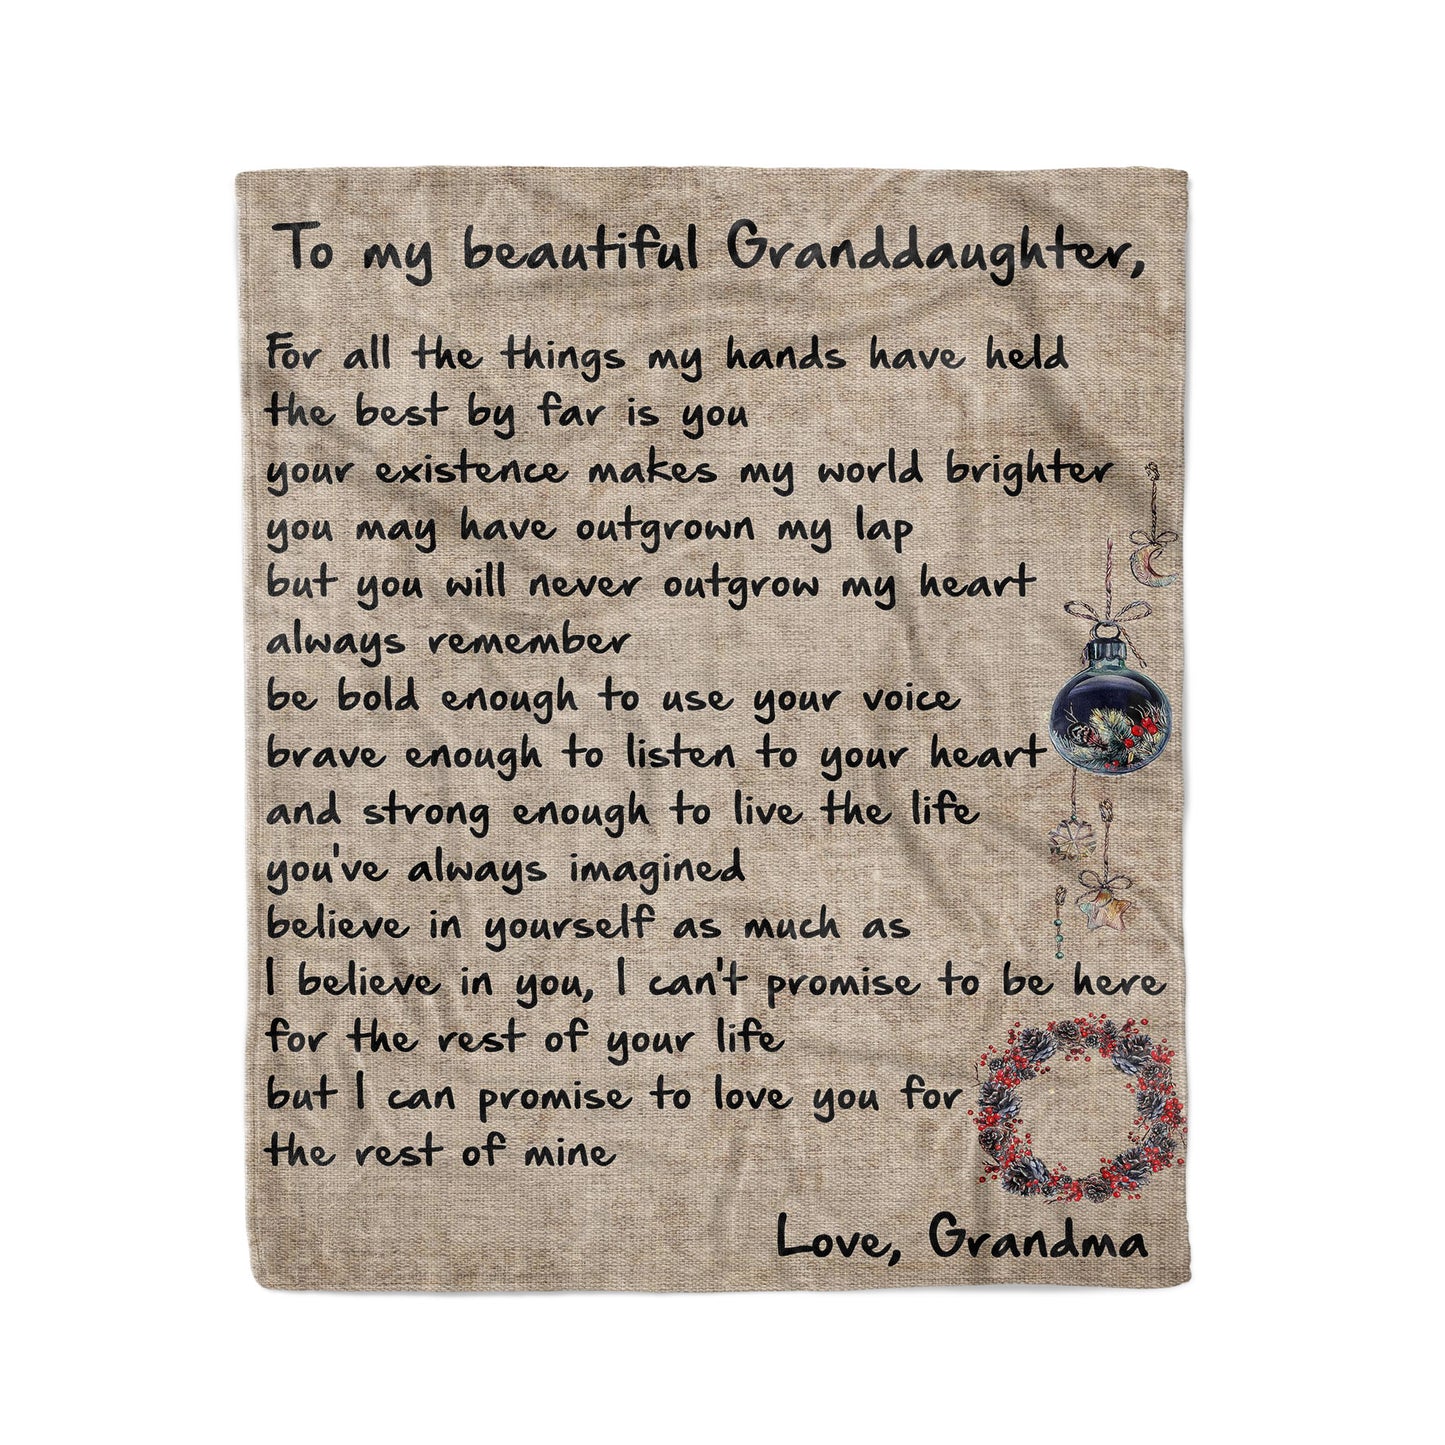 To my beautiful Granddaughter,
For all the things my hands have held
the best by far is you
your existence makes my world brighter
you may have outgrown my lap
but you will never outgrow my heart
always remember
be bold enough to use your voice
brave enough to listen to your heart
and strong enough to live the life
you've always imagined
believe in yourself as much as
I believe in you, I can't promise to be here
for the rest of your life
but I can promise to love you for
the rest of mine
Love, Grandma